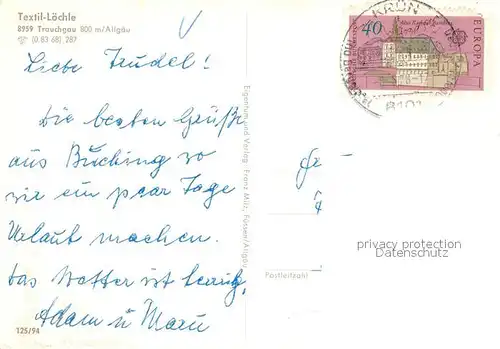 Textil-Löchle
8959 Trauchgau 800 m/Allgäu
☎ (0 83 68) 287
Liebe Trudel!
Die besten Grüße
aus Buching wo
wir ein paar Tage
Urlaub machen.
Das Wetter ist
Adam u
125/94
Eigentum und Verlag Franz Milz, Füssen/Allgäu
KRÜN
8101
40
EUROPA
privacy protection
Datenschutz
Postleitzahl